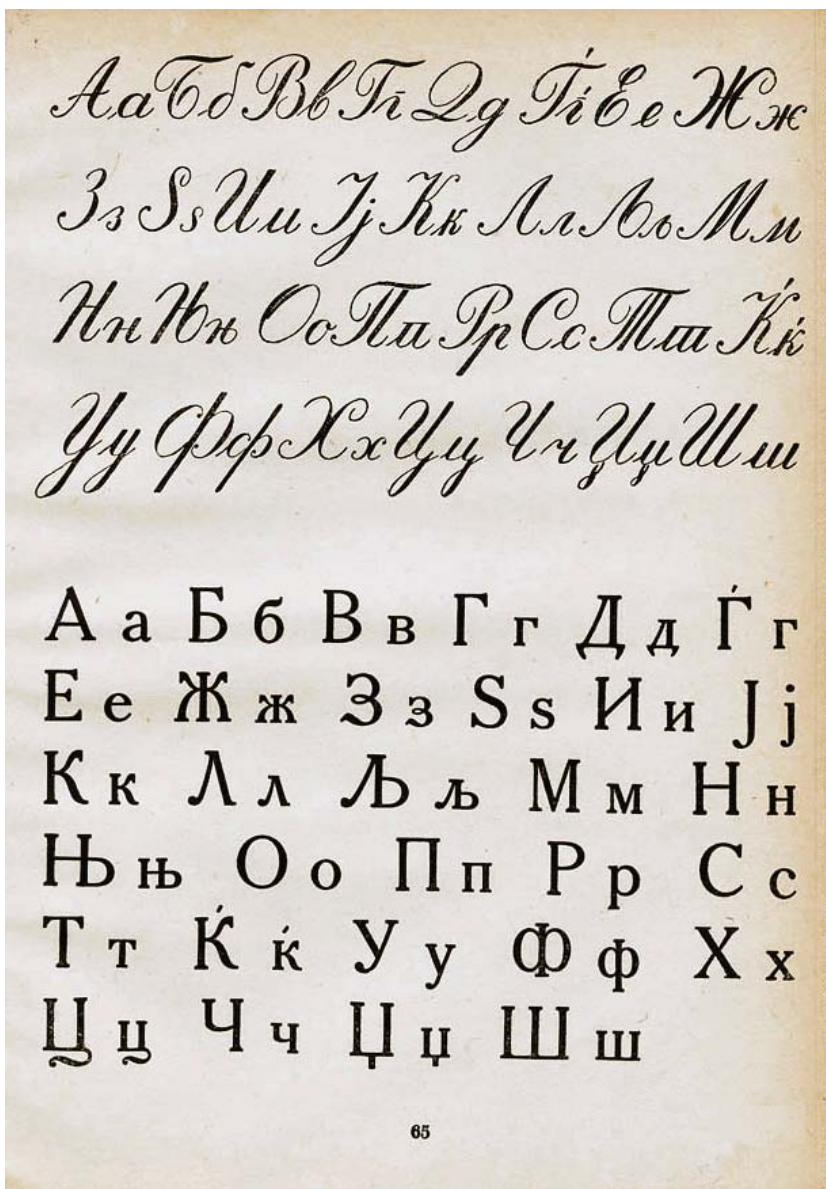 Аа Бб Вв Гг Дд Ѓѓ Ее Жж
Зз Ѕѕ Ии Јј Кк Лл Љљ Мм
Нн Њњ Оо Пп Рр Сс Тт Ќќ
Уу Фф Хх Цц Чч Џџ Шш
А а Б б В в Г г Д д Ѓ г
Е е Ж ж З з Ѕ ѕ И и Ј ј
К к Л л Љ љ М м Н н
Њ њ О о П п Р р С с
Т т Ќ ќ У у Ф ф Х х
Ц ц Ч ч Џ џ Ш ш
65